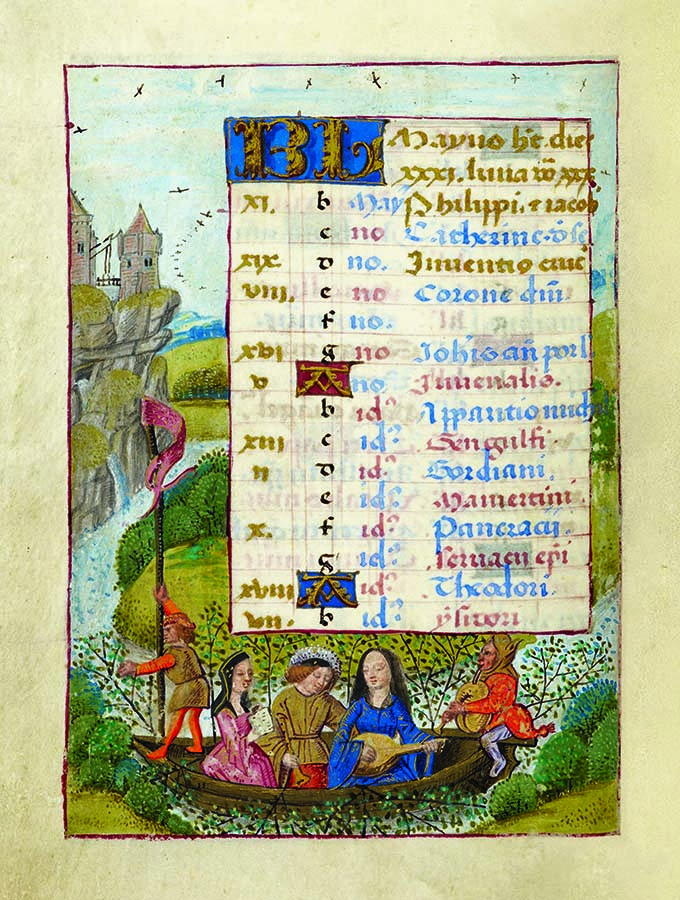 KL Mayuo h't die
XXXI. luua v'o xxx
xi. b May Philippi. & iacob
c no Catherine. d' se
xix. d no. Inuentio cruc
viii. e no Corone dni
f no.
xvi g no Joh'is an' porl
v A no. Juuenalis.
b id' Apparitio mich
xiii c id' Gengulfi.
ii d id' Gordiani.
e id' Mamertini
x. f id' Pancracii.
g id' seruacii epi
xviii A id' Theodori.
vii. b id' ysitori